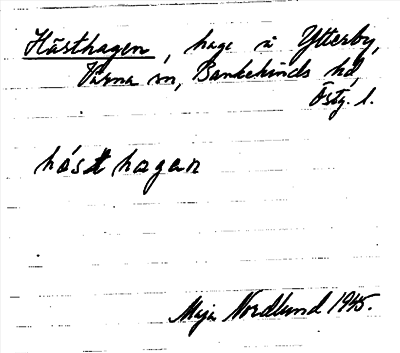 Hästhagen, hage i Ytterby,
Värna sn, Bankekinds hd,
Östg. l.
hósthagan
Maja Nordlund 1945.